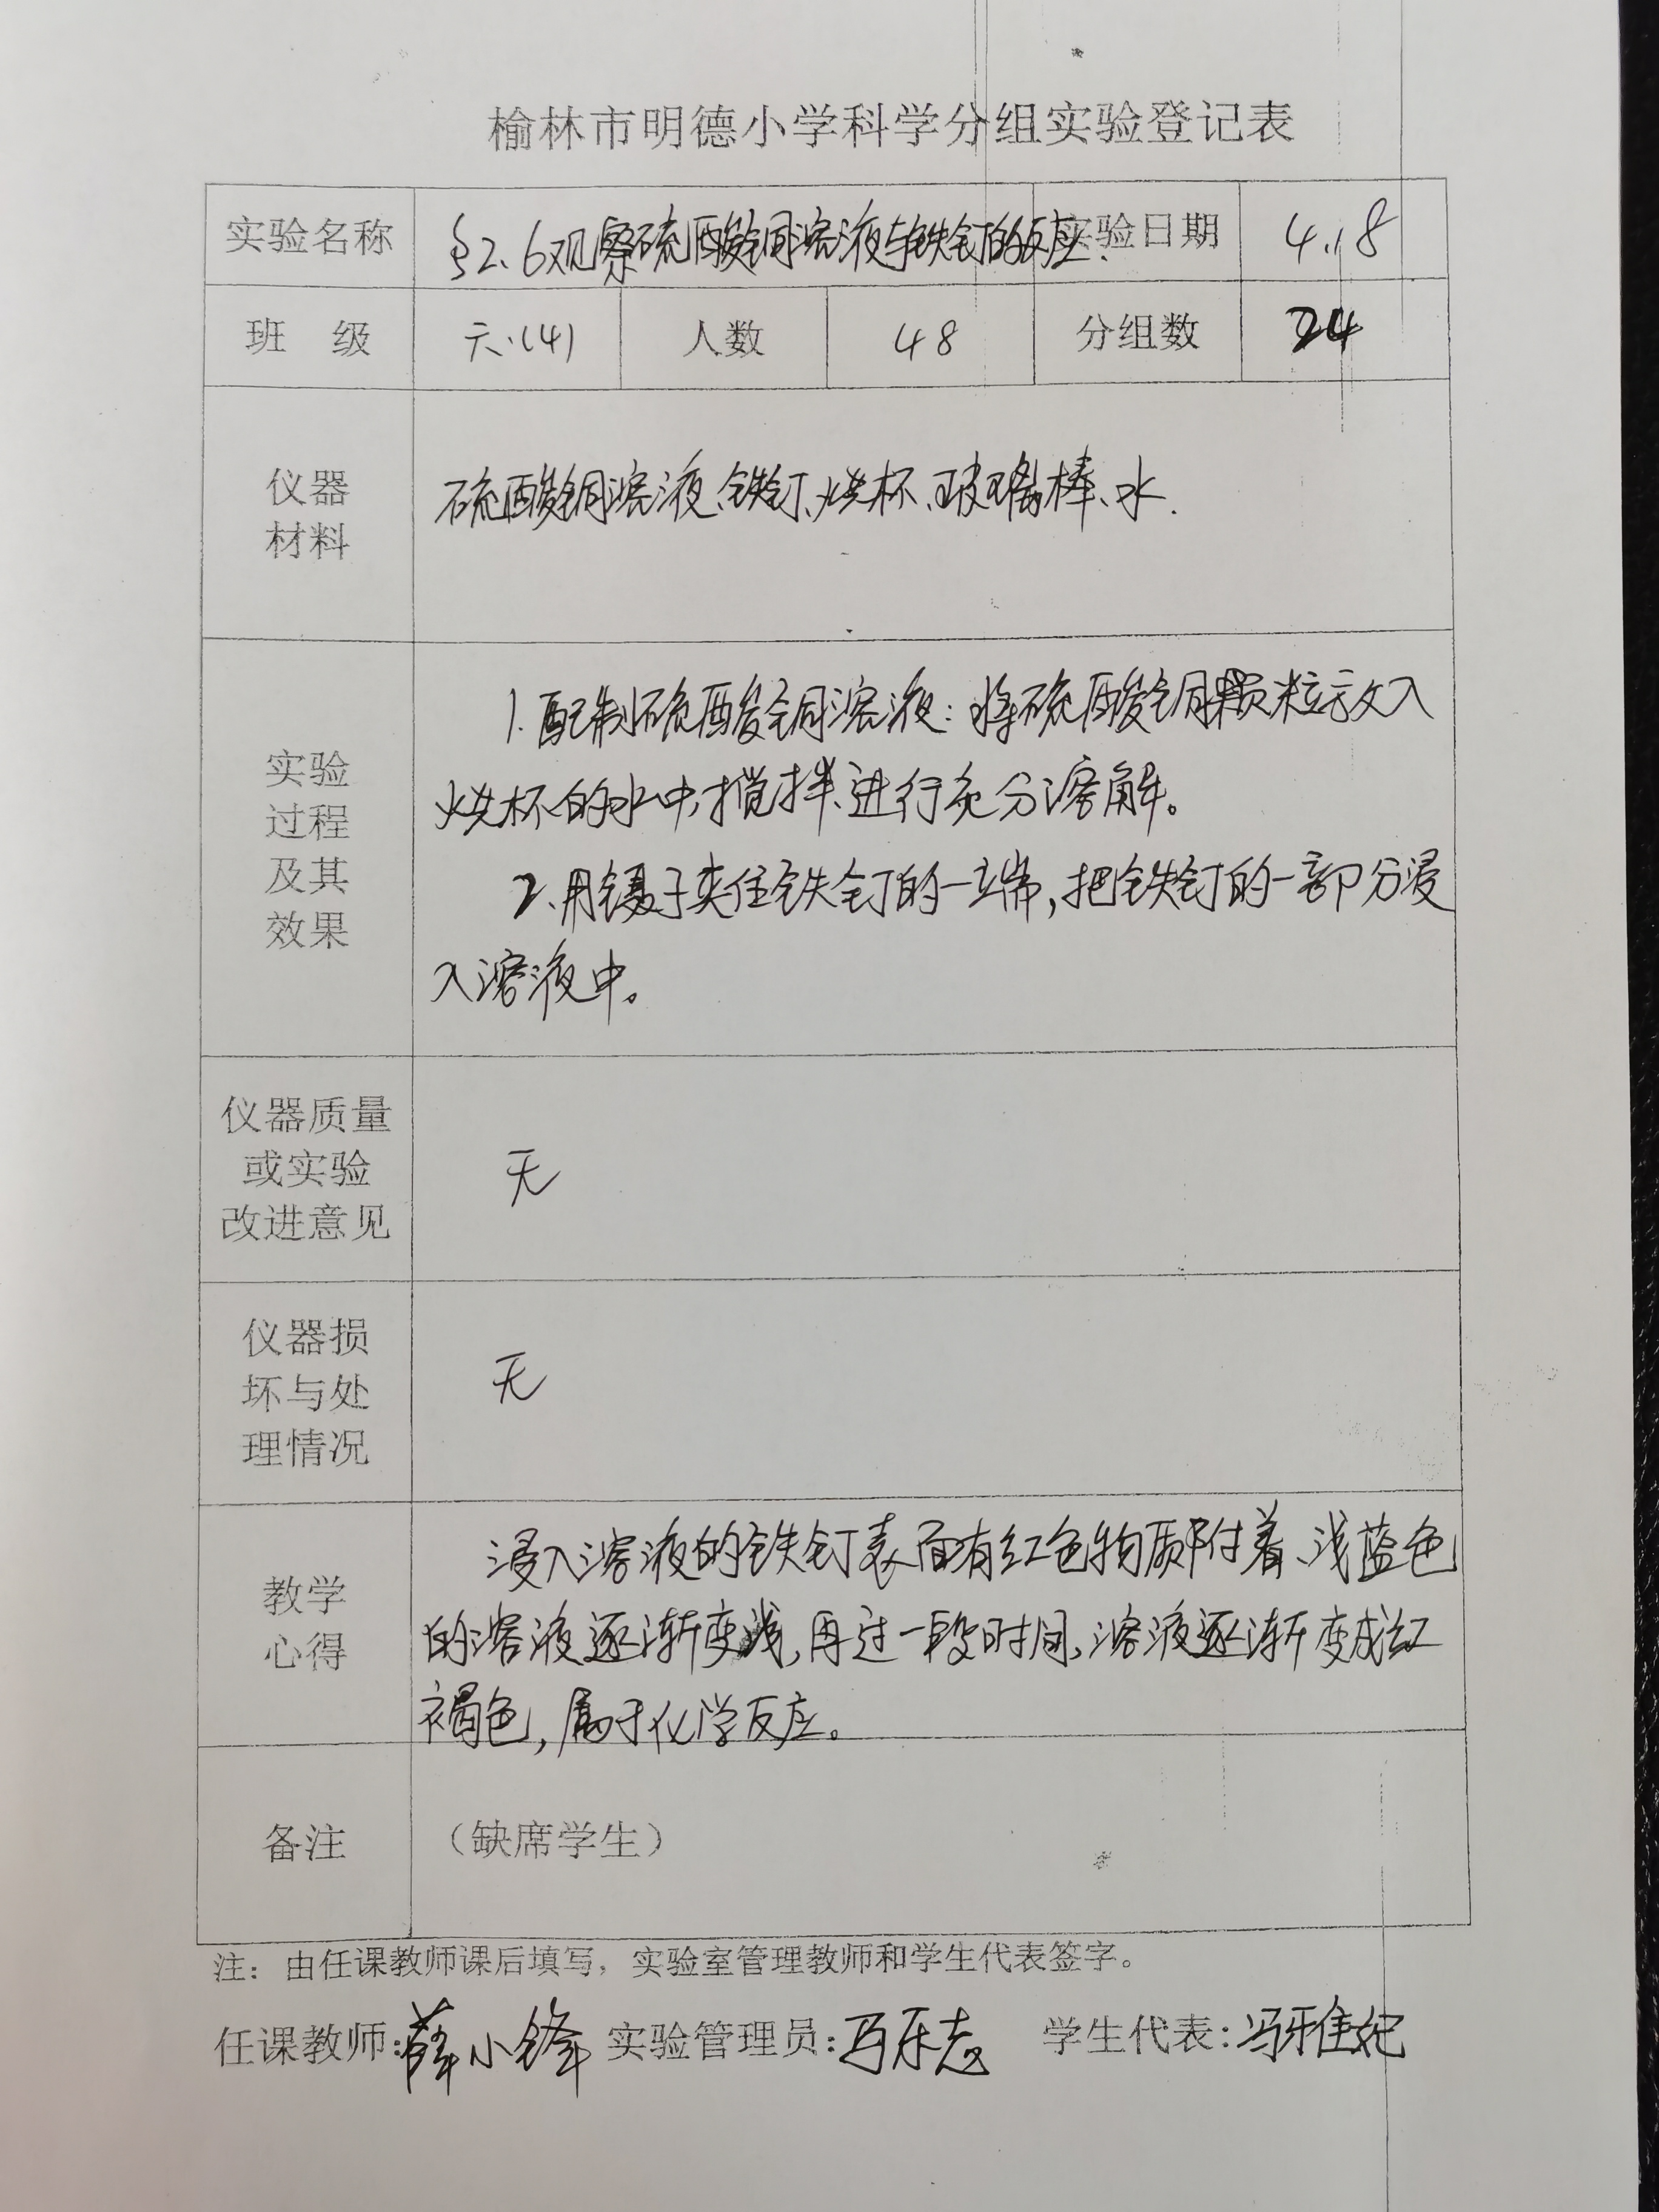 榆林市明德小学科学分组实验登记表
实验名称 §2.6观察硫酸铜溶液与铁钉的反应. 实验日期 4.18
班 级 六.(4) 人数 48 分组数 24
仪器
材料
硫酸铜溶液、铁钉、烧杯、玻璃棒、水.
实验
过程
及其
效果
1.配制硫酸铜溶液:将硫酸铜颗粒放入
烧杯的水中,搅拌、进行充分溶解。
2.用镊子夹住铁钉的一端,把铁钉的一部分浸
入溶液中。
仪器质量
或实验
改进意见
无
仪器损
坏与处
理情况
无
教学
心得
浸入溶液的铁钉表面有红色物质附着、浅蓝色
的溶液逐渐变浅,再过一段时间,溶液逐渐变成红
褐色,属于化学反应。
备注 (缺席学生)
注:由任课教师课后填写,实验室管理教师和学生代表签字。
任课教师:薛小锋 实验管理员:冯乐志 学生代表:冯雅妃